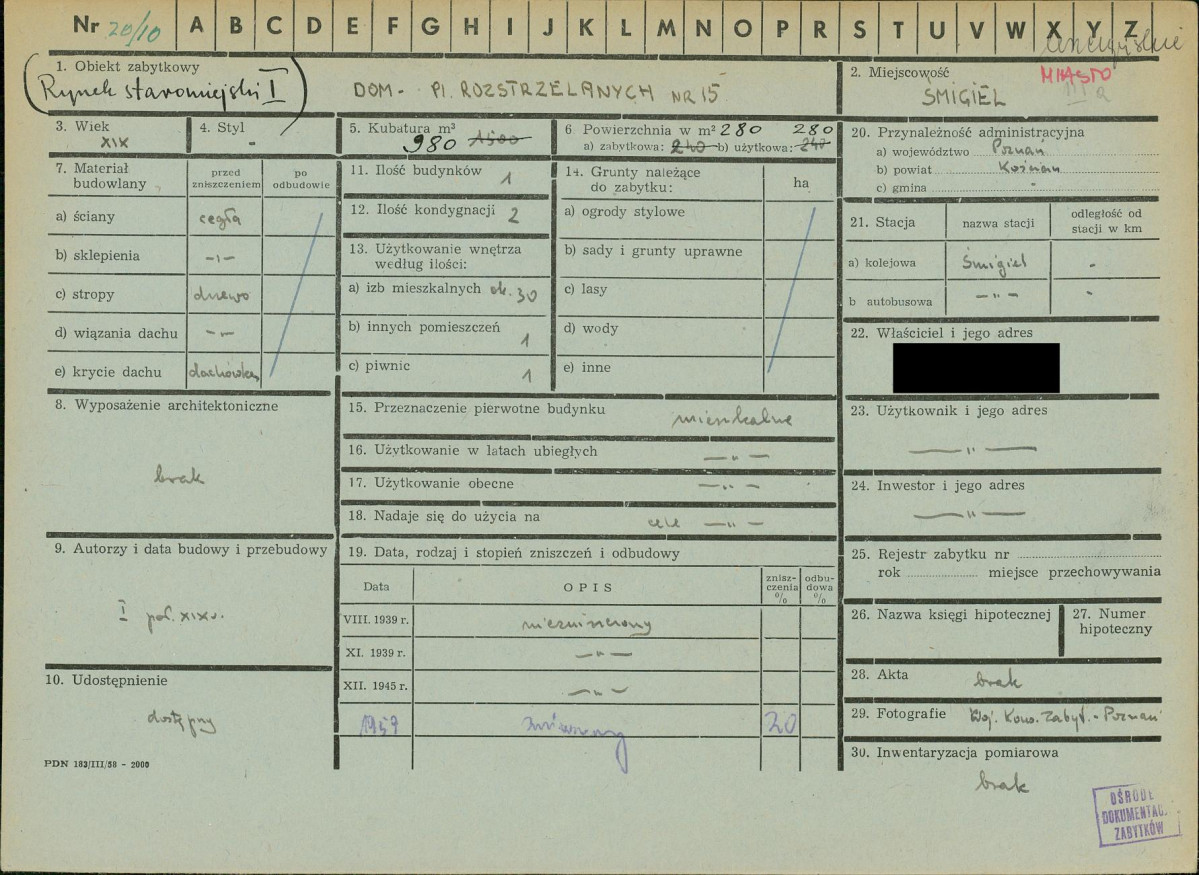 Nr 20/10 A B C D E F G H I J K L M N O P R S T U V W X Y Z
1. Obiekt zabytkowy
Rynek staromiejski I
DOM - Pl. ROZSTRZELANYCH NR 15
2. Miejscowość
MIASTO
ŚMIGIEL
3. Wiek
XIX
4. Styl
-
5. Kubatura m³
980 1500
6 Powierzchnia w m² 280 280
a) zabytkowa: 240 b) użytkowa: 240
7. Materiał budowlany
przed zniszczeniem
po odbudowie
a) ściany cegła
b) sklepienia -ı-
c) stropy drewo
d) wiązania dachu -"-
e) krycie dachu dachówka
8. Wyposażenie architektoniczne
brak
9. Autorzy i data budowy i przebudowy
I poł. XIX w.
10. Udostępnienie
dostępny
PDN 183/III/58 - 2000
11. Ilość budynków 1
12. Ilość kondygnacji 2
13. Użytkowanie wnętrza
według ilości:
a) izb mieszkalnych ok. 30
b) innych pomieszczeń 1
c) piwnic 1
14. Grunty należące
do zabytku:
ha
a) ogrody stylowe
b) sady i grunty uprawne
c) lasy
d) wody
e) inne
15. Przeznaczenie pierwotne budynku mieszkalne
16. Użytkowanie w latach ubiegłych -"-
17. Użytkowanie obecne -"-
18. Nadaje się do użycia na cele -"-
19. Data, rodzaj i stopień zniszczeń i odbudowy
Data OPIS znisz-czenia % odbu-dowa %
VIII. 1939 r. niezniszczony
XI. 1939 r. -"-
XII. 1945 r. -"-
1957 20
20. Przynależność administracyjna
a) województwo Poznań
b) powiat Kościan
c) gmina -
21. Stacja
nazwa stacji
odległość od stacji w km
a) kolejowa Śmigiel -
b autobusowa -"- -
22. Właściciel i jego adres
23. Użytkownik i jego adres
-"-
24. Inwestor i jego adres
-"-
25. Rejestr zabytku nr
rok miejsce przechowywania
26. Nazwa księgi hipotecznej
27. Numer hipoteczny
28. Akta brak
29. Fotografie Woj. Kons. Zabyt. - Poznań
30. Inwentaryzacja pomiarowa
brak
OŚRODE
DOKUMENTAC
ZABYTKÓW